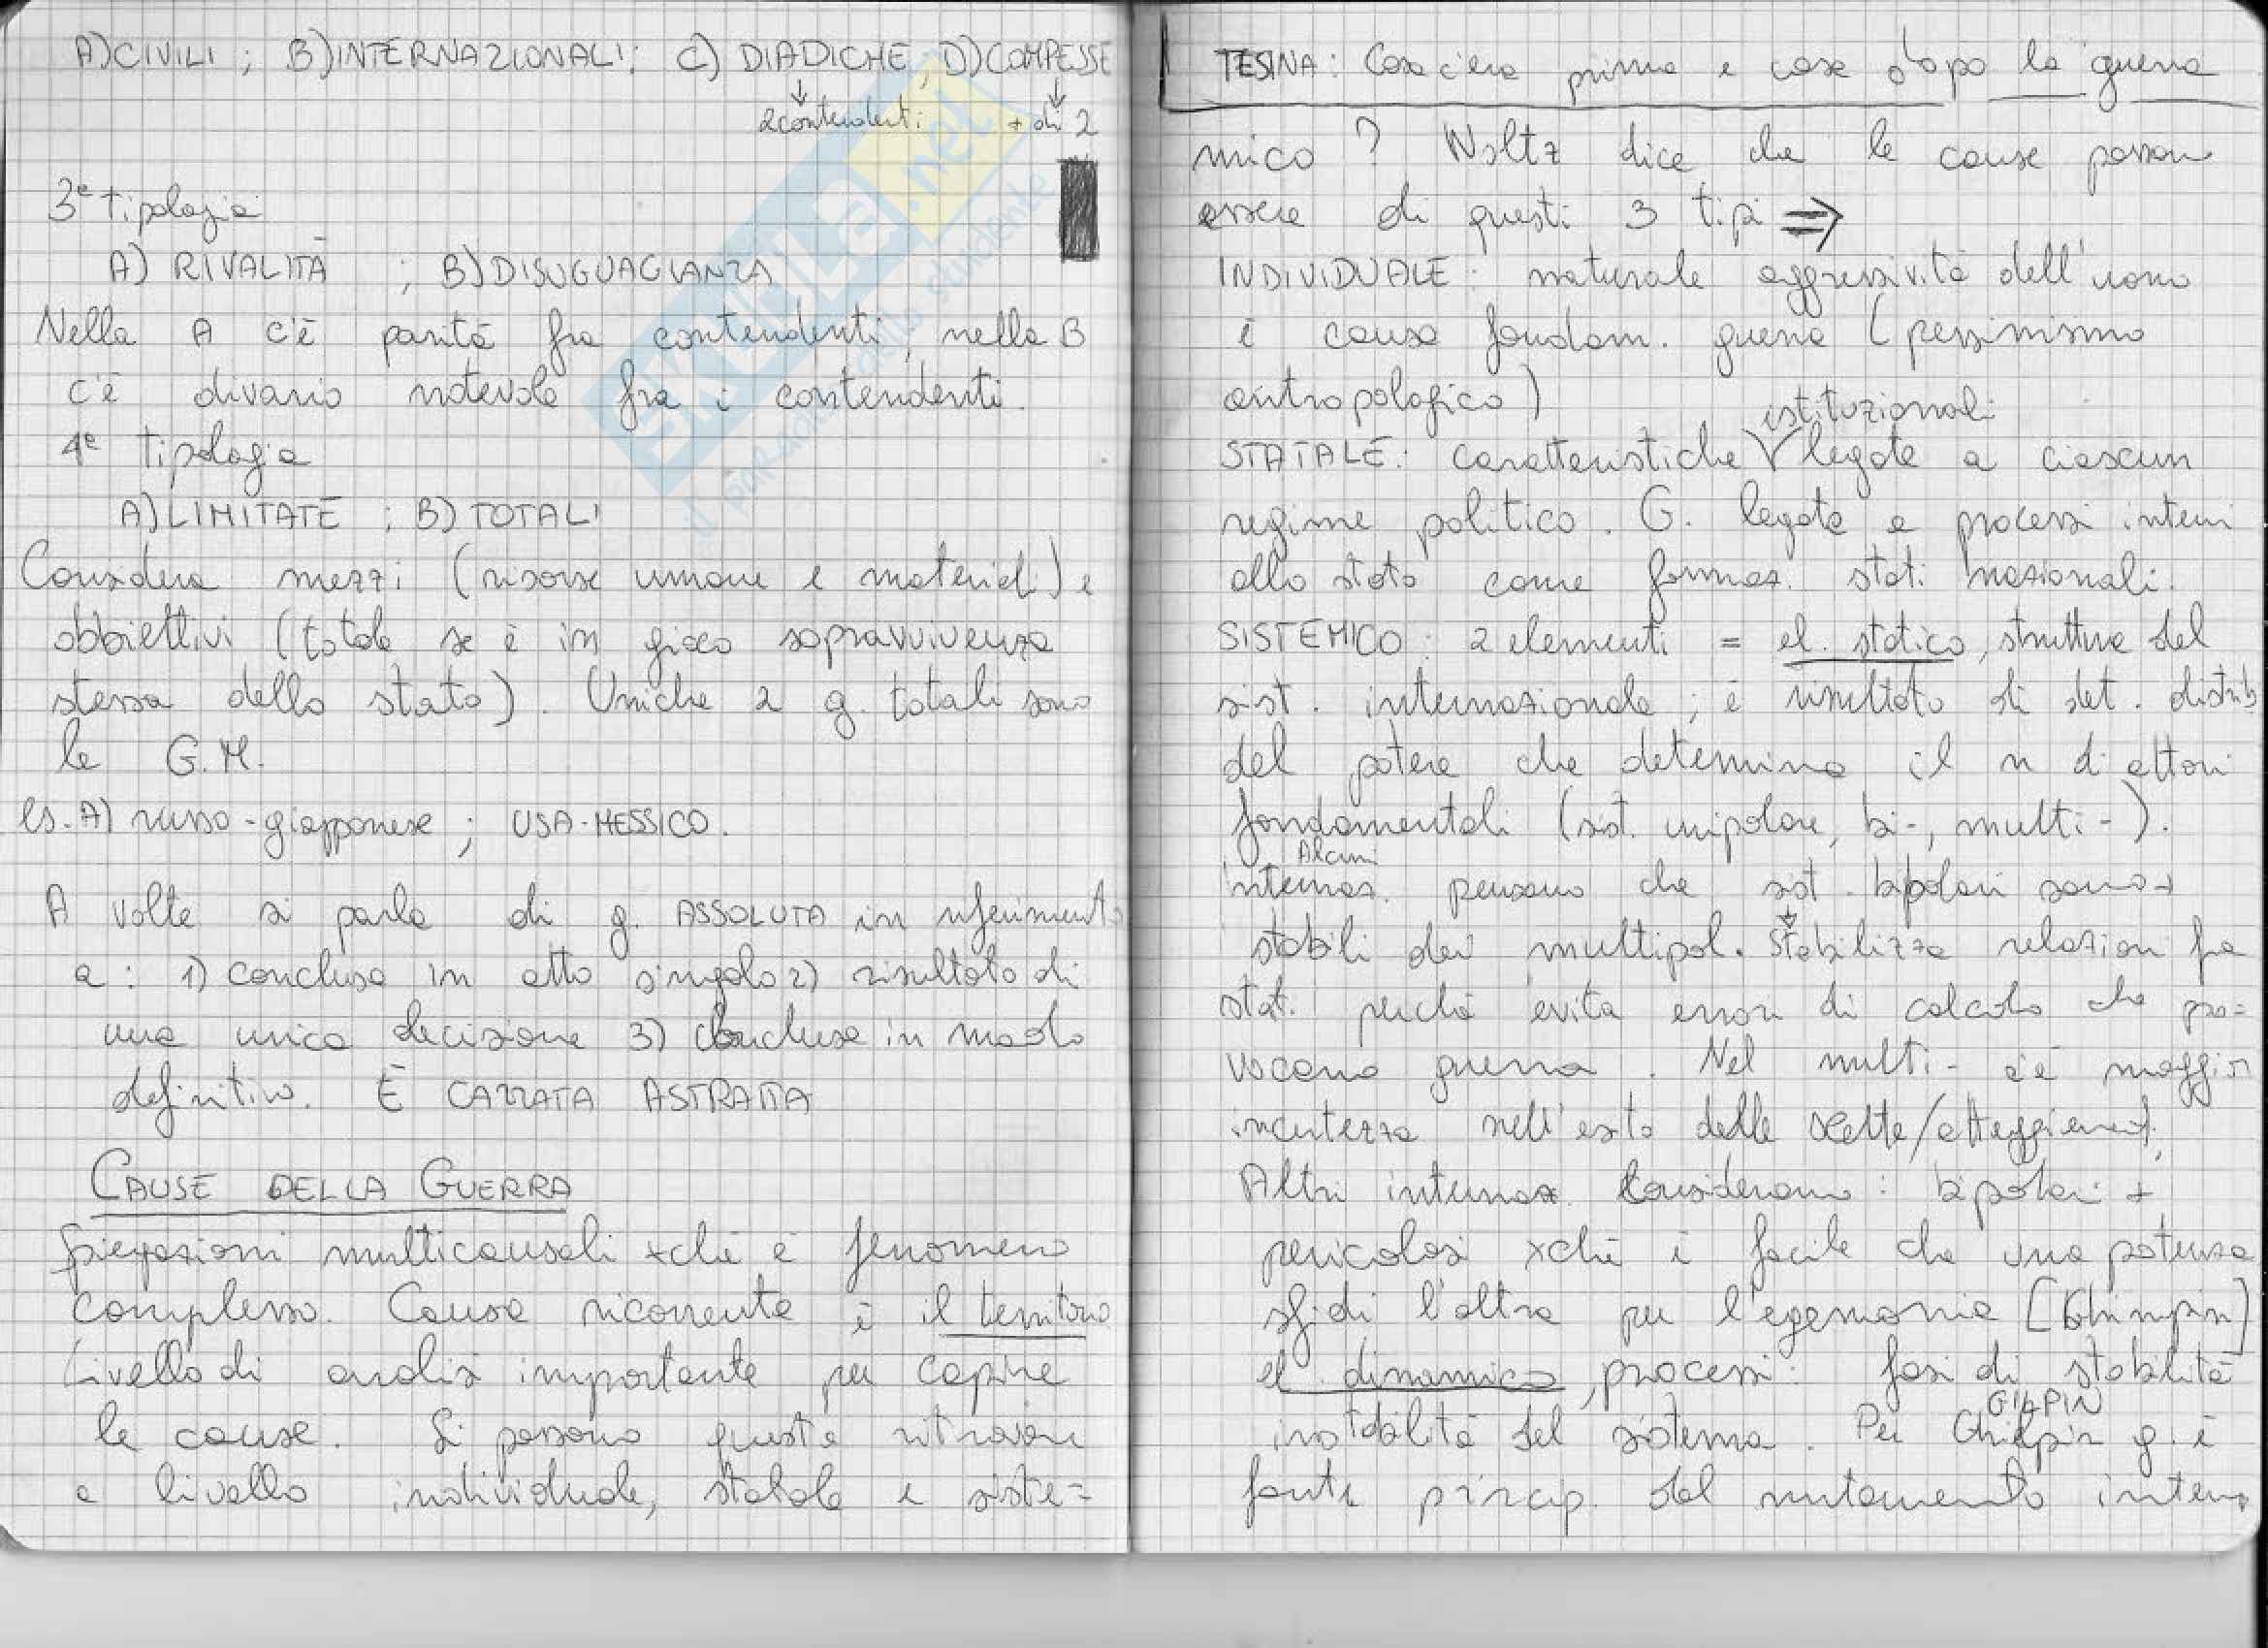 A) CIVILI ; B) INTERNAZIONALI ; C) DIADICHE , D) COMPESSE
↓ ↓
2 contendenti + di 2
3ª tipologia
A) RIVALITÀ ; B) DISUGUAGLIANZA
Nella A c'è parità fra contendenti, nella B
c'è divario notevole fra i contendenti.
4ª tipologia
A) LIMITATE ; B) TOTALI
Considera mezzi (risorse umane e materiali) e
obbiettivi (totale se è in gioco sopravvivenza
stessa dello stato). Uniche 2 g. totali sono
le G.M.
es. A) russo-giapponese ; USA-MESSICO.
A volte si parla di g. ASSOLUTA in riferimento
a: 1) conclusa in atto singolo 2) risultato di
una unica decisione 3) conclusa in modo
definitivo. È CAZZATA ASTRATTA
CAUSE DELLA GUERRA
Spiegazioni multicausali xchè è fenomeno
complesso. Causa ricorrente è il territorio
Livello di analisi importante per capire
le cause. Si possono queste ritrovare
a livello individuale, statale e siste=
SKUOLA.net
il paradiso dello studente
TESINA: Cosa c'era prima e cosa dopo la guerra
mico ? Waltz dice che le cause possono
essere di questi 3 tipi ⇒
INDIVIDUALE : naturale aggressività dell'uomo
è causa fondam. guerra (pessimismo
antropologico)
istituzionali
STATALE : caratteristiche V legate a ciascun
regime politico. G. legate a processi interni
allo stato come formaz. stati nazionali.
SISTEMICO : 2 elementi = el. statico, struttura del
sist. internazionale ; è risultato di det. distrib
del potere che determina il n di attori
fondamentali (sist. unipolare, bi-, multi-).
Alcuni
internaz. pensano che sist. bipolari sono +
stabili dei multipol. Stabilizza relazioni fra
stati perchè evita errori di calcolo che pro=
vocano guerra. Nel multi- c'è maggior
incertezza nell'esito delle scelte/atteggiamenti,
Altri internaz. considerano : bipolari +
pericolosi xchè è facile che una potenza
sfidi l'altra per l'egemonia [Ghinpin]
el. dinamico, processi: fasi di stabilità
GILPIN
instabilità del sistema. Per Ghilpin g. è
fonte princip. del mutamento intern